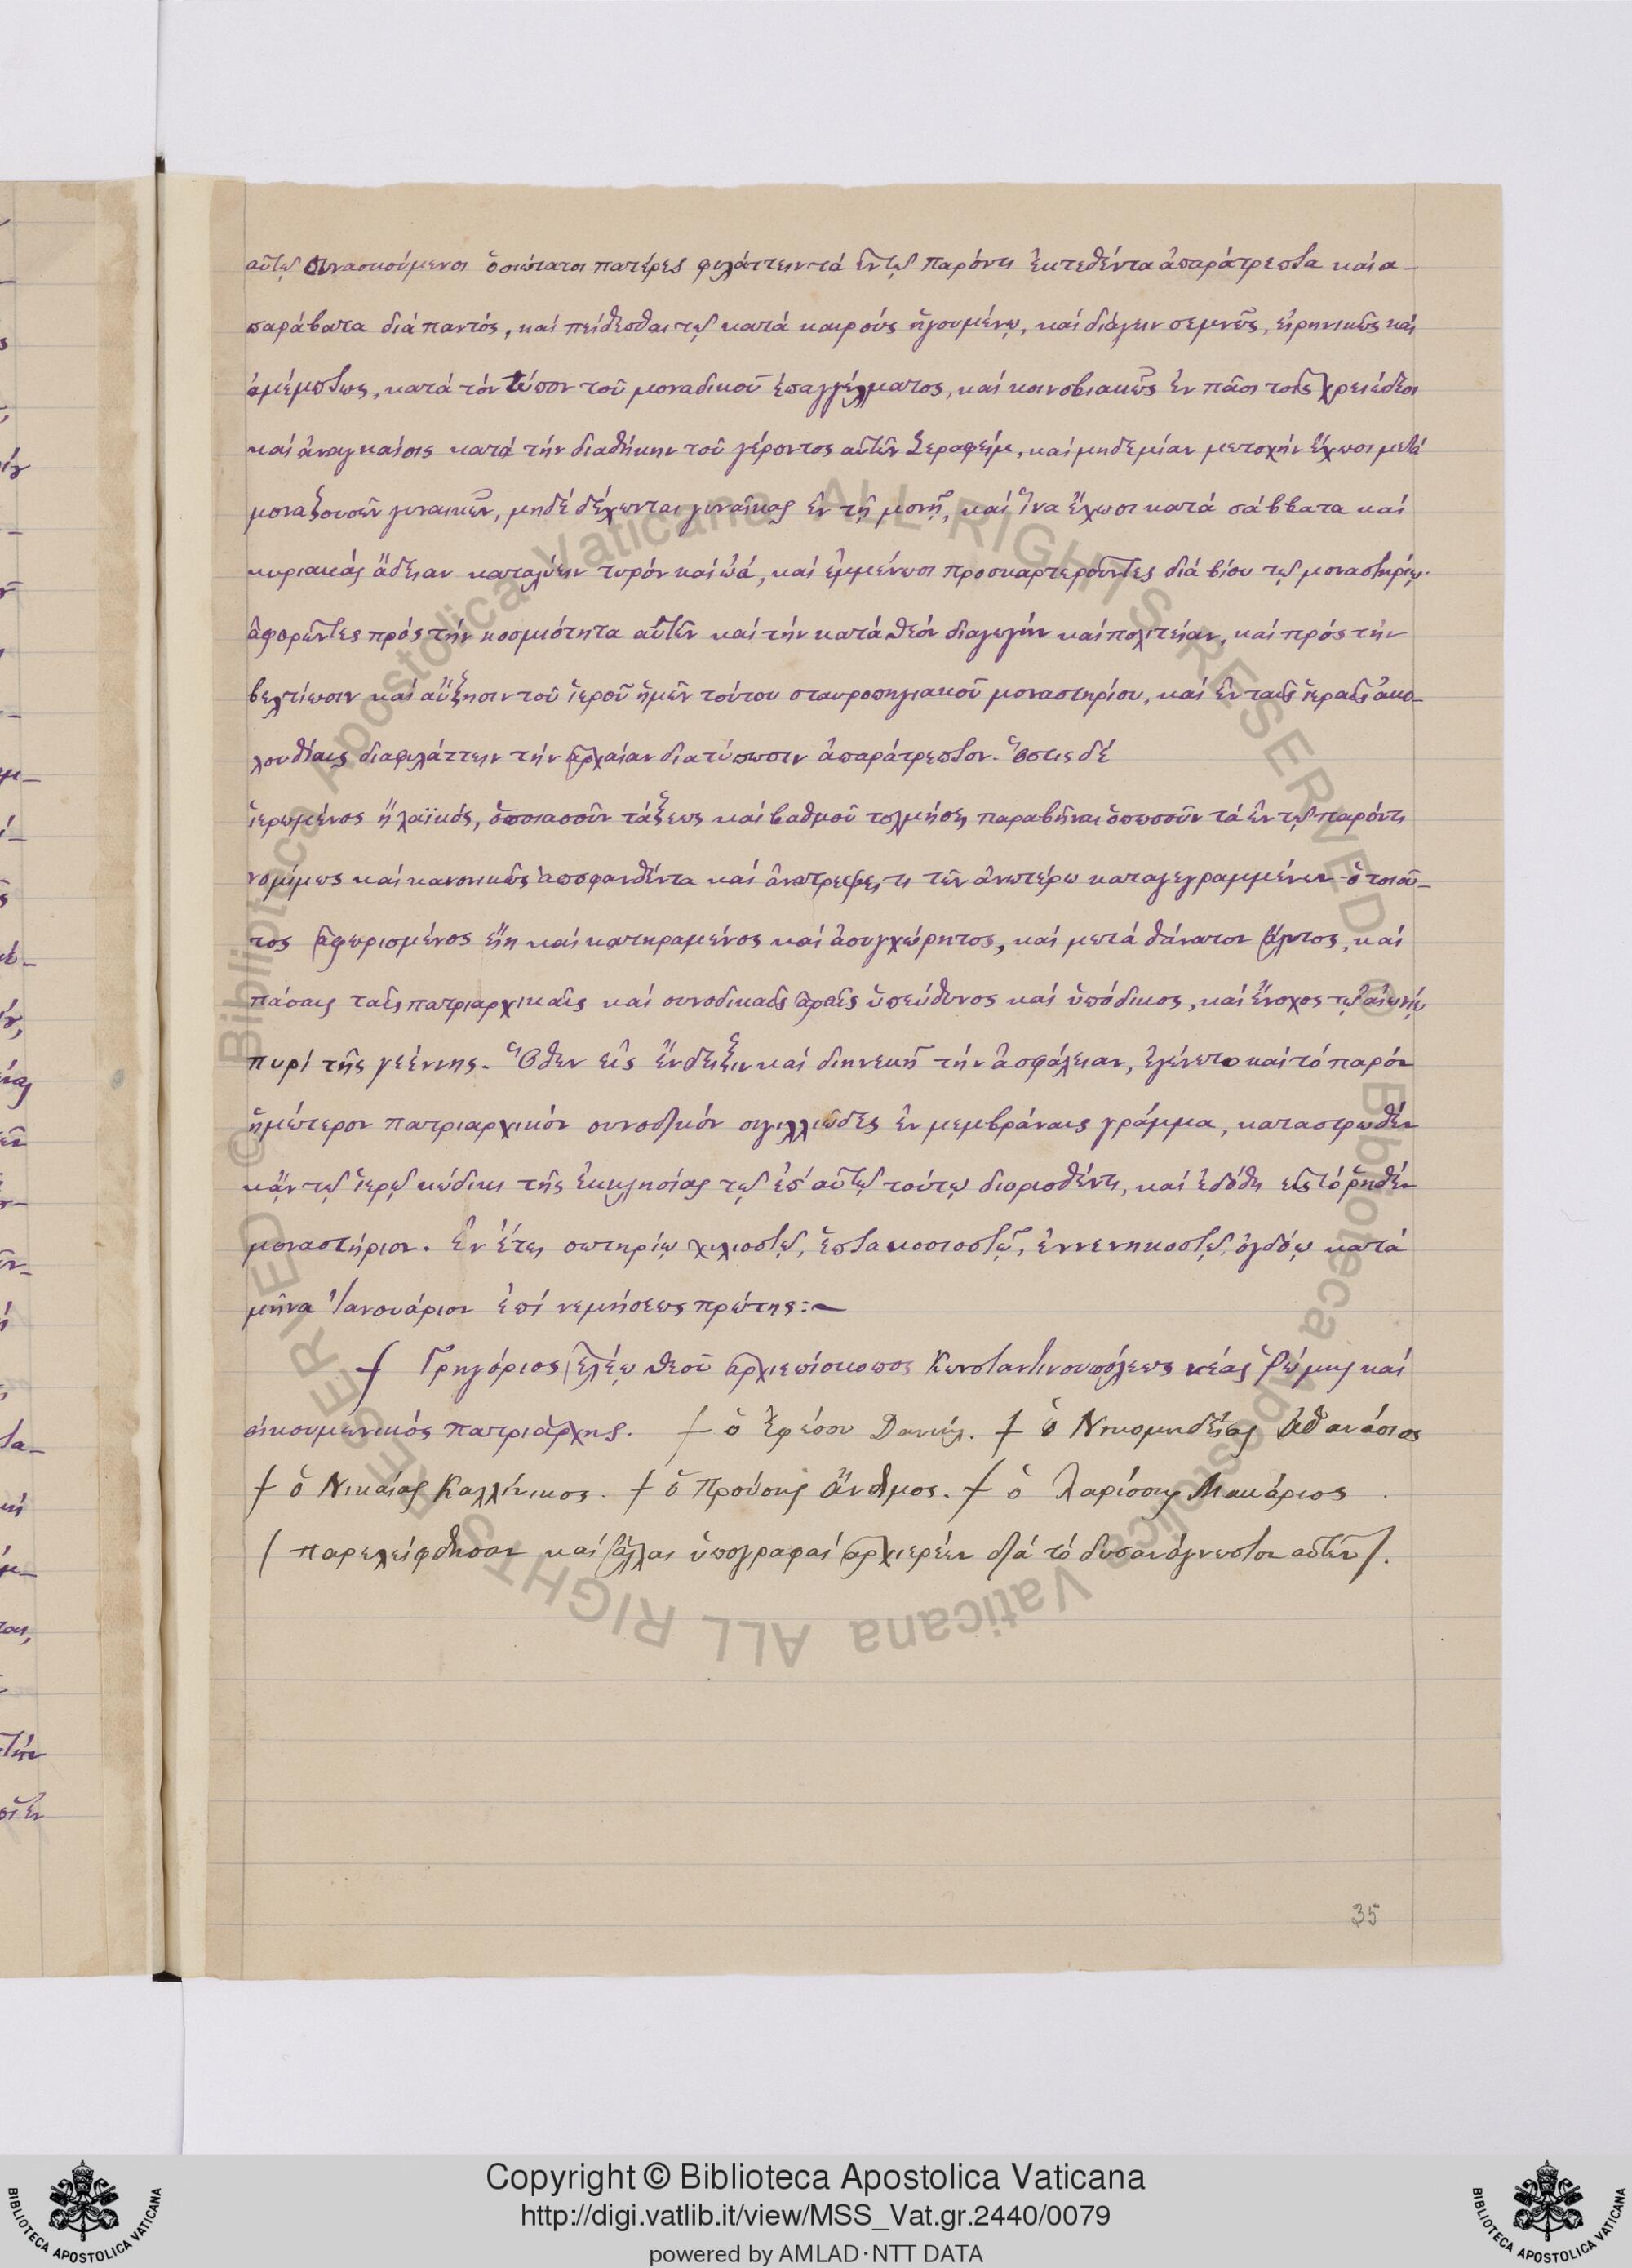 αὐτῷ συνασκούμενοι ὁσιώτατοι πατέρες φυλάττειν τά ἐν τῷ παρόντι ἐκτεθέντα ἀπαράτρεπτα καί ἀ-
παράβατα διά παντός, καί πείθεσθαι τῷ κατά καιρούς ἡγουμένῳ, καί διάγειν σεμνῶς, εἰρηνικῶς καί
ἀμέμπτως, κατά τόν τύπον τοῦ μοναδικοῦ ἐπαγγέλματος, καί κοινοβιακῶς ἐν πᾶσι τοῖς χρειώδεσι
καί ἀναγκαίοις κατά τήν διαθήκην τοῦ γέροντος αὐτῶν Σεραφείμ, καί μηδεμίαν μετοχήν ἔχωσι μετά
μοναζουσῶν γυναικῶν, μηδέ δέχωνται γυναῖκας ἐν τῇ μονῇ, καί ἵνα ἔχωσι κατά σάββατα καί
κυριακάς ἄδειαν καταλύειν τυρόν καί ὠά, καί ἐμμένωσι προσκαρτεροῦντες διά βίου τῷ μοναστηρίῳ.
ἀφορῶντες πρός τήν κοσμιότητα αὐτῶν καί τήν κατά θεόν διαγωγήν καί πολιτείαν, καί πρός τήν
βελτίωσιν καί αὔξησιν τοῦ ἱεροῦ ἡμῶν τούτου σταυροπηγιακοῦ μοναστηρίου, καί ἐν ταῖς ἱεραῖς ἀκο-
λουθίαις διαφυλάττειν τήν ἀρχαίαν διατύπωσιν ἀπαράτρεπτον. Ὅστις δέ
ἱερωμένος ἤ λαϊκός, ὁποιασοῦν τάξεως καί βαθμοῦ τολμήσῃ παραβῆναι ὁπωσοῦν τά ἐν τῷ παρόντι
νομίμως καί κανονικῶς ἀποφανθέντα καί ἀνατρέψῃ τι τῶν ἀνωτέρω καταγεγραμμένων ὁ τοιοῦ-
τος ἀφωρισμένος εἴη καί κατηραμένος καί ἀσυγχώρητος, καί μετά θάνατον ἄλυτος, καί
πάσαις ταῖς πατριαρχικαῖς καί συνοδικαῖς ἀραῖς ὑπεύθυνος καί ὑπόδικος, καί ἔνοχος τῷ αἰωνίῳ
πυρί τῆς γεέννης. Ὅθεν εἰς ἔνδειξιν καί διηνεκῆ τήν ἀσφάλειαν, ἐγένετο καί τό παρόν
ἡμέτερον πατριαρχικόν συνοδικόν σιγιλλιῶδες ἐν μεμβράναις γράμμα, καταστρωθέν
κἀν τῷ ἱερῷ κώδικι τῆς ἐκκλησίας τῷ ἐπ' αὐτῷ τούτῳ διορισθέντι, καί ἐδόθη εἰς τό ῥηθέν
μοναστήριον. Ἐν ἔτει σωτηρίῳ χιλιοστῷ, ἑπτακοσιοστῷ, ἐννενηκοστῷ, ὀγδόῳ κατά
μῆνα Ἰανουάριον ἐπί νεμήσεως πρώτης:~
† Γρηγόριος ἐλέῳ θεοῦ ἀρχιεπίσκοπος Κωνσταντινουπόλεως νέας ῥώμης καί
οἰκουμενικός πατριάρχης. † ὁ Ἐφέσου Δανιήλ. † ὁ Νικομηδείας Ἀθανάσιος
† ὁ Νικαίας Καλλίνικος. † ὁ Προύσης Ἄνθιμος. † ὁ Λαρίσσης Μακάριος.
(παρελείφθησαν καί ἄλλαι ὑπογραφαί ἀρχιερέων διά τό δυσανάγνωστον αὐτῶν).
35
Copyright © Biblioteca Apostolica Vaticana
http://digi.vatlib.it/view/MSS_Vat.gr.2440/0079
powered by AMLAD·NTT DATA
BIBLIOTECA APOSTOLICA VATICANA
BIBLIOTECA APOSTOLICA VATICANA
© Biblioteca Apostolica Vaticana ALL RIGHTS RESERVED
© Biblioteca Apostolica Vaticana ALL RIGHTS RESERVED